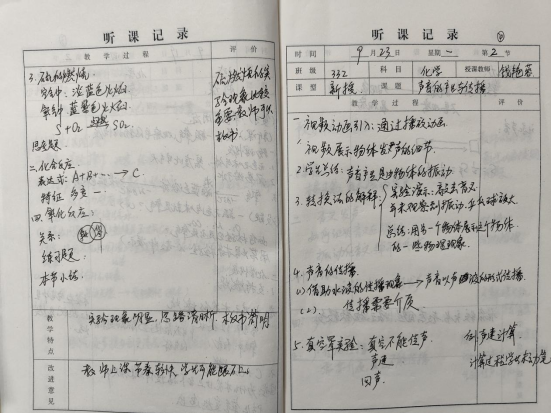 听课记录
教学过程 评价
3. 硫的燃烧
空气中: 淡蓝色火焰
氧气中 蓝紫色火焰
S+O₂ 点燃 SO₂
思考题
二. 化合反应
表达式: A+B+…→C
特征 多变一
四. 氧化反应:
关系:
练习题:
本节小结:
教学特点
实验现象明显, 思路清晰, 板书简明
改进意见
教师上课节奏较快 学生可能跟不上
听课记录
时间 9月23日 星期二 第2节
班级 332 科目 化学 授课教师:
课型 新授 课题 声音的产生与传播
教学过程 评价
一 视频动画引入: 通过播放动画
视频展示物体发声的细节.
2. 学生总结: 声音产生是由物体的振动
3. 转换法的解释: 实验演示: 敲击音叉
并未观察到振动, 乒乓球放大
总结: 用另一个物体展示这个物体
的一些物理现象.
4. 声音的传播.
(1) 借助水波的传播现象→声音以声波的形式传播.
(2). 传播需要介质
5. 真空罩实验: 真空不能传声.
声速
回声.
例 声速计算.